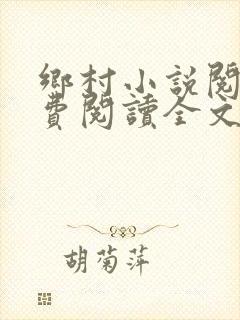 鄉村小說閱
費閱讀全文
胡菊萍